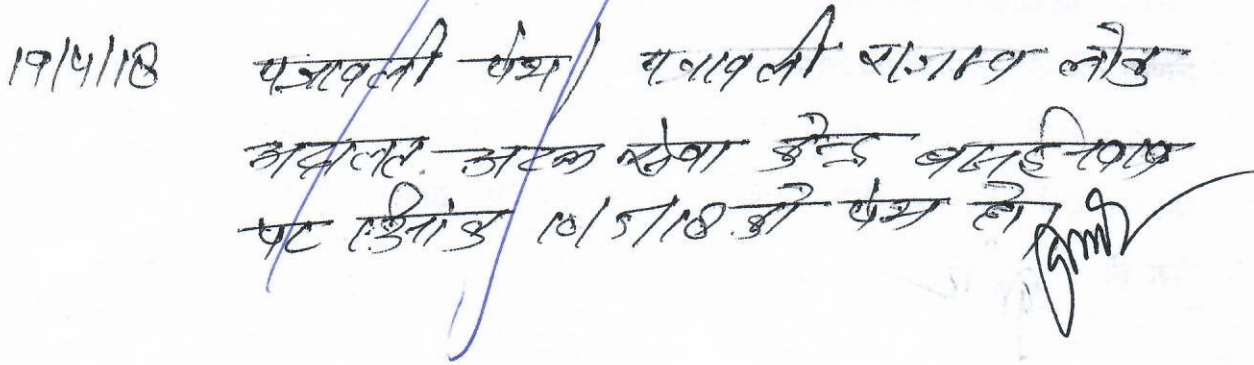 19/4/18 पत्रावली पेश। पत्रावली राजस्व लोक
अदालत अटल सेवा केन्द्र
पर दिनांक 10/5/18 को पेश हो।